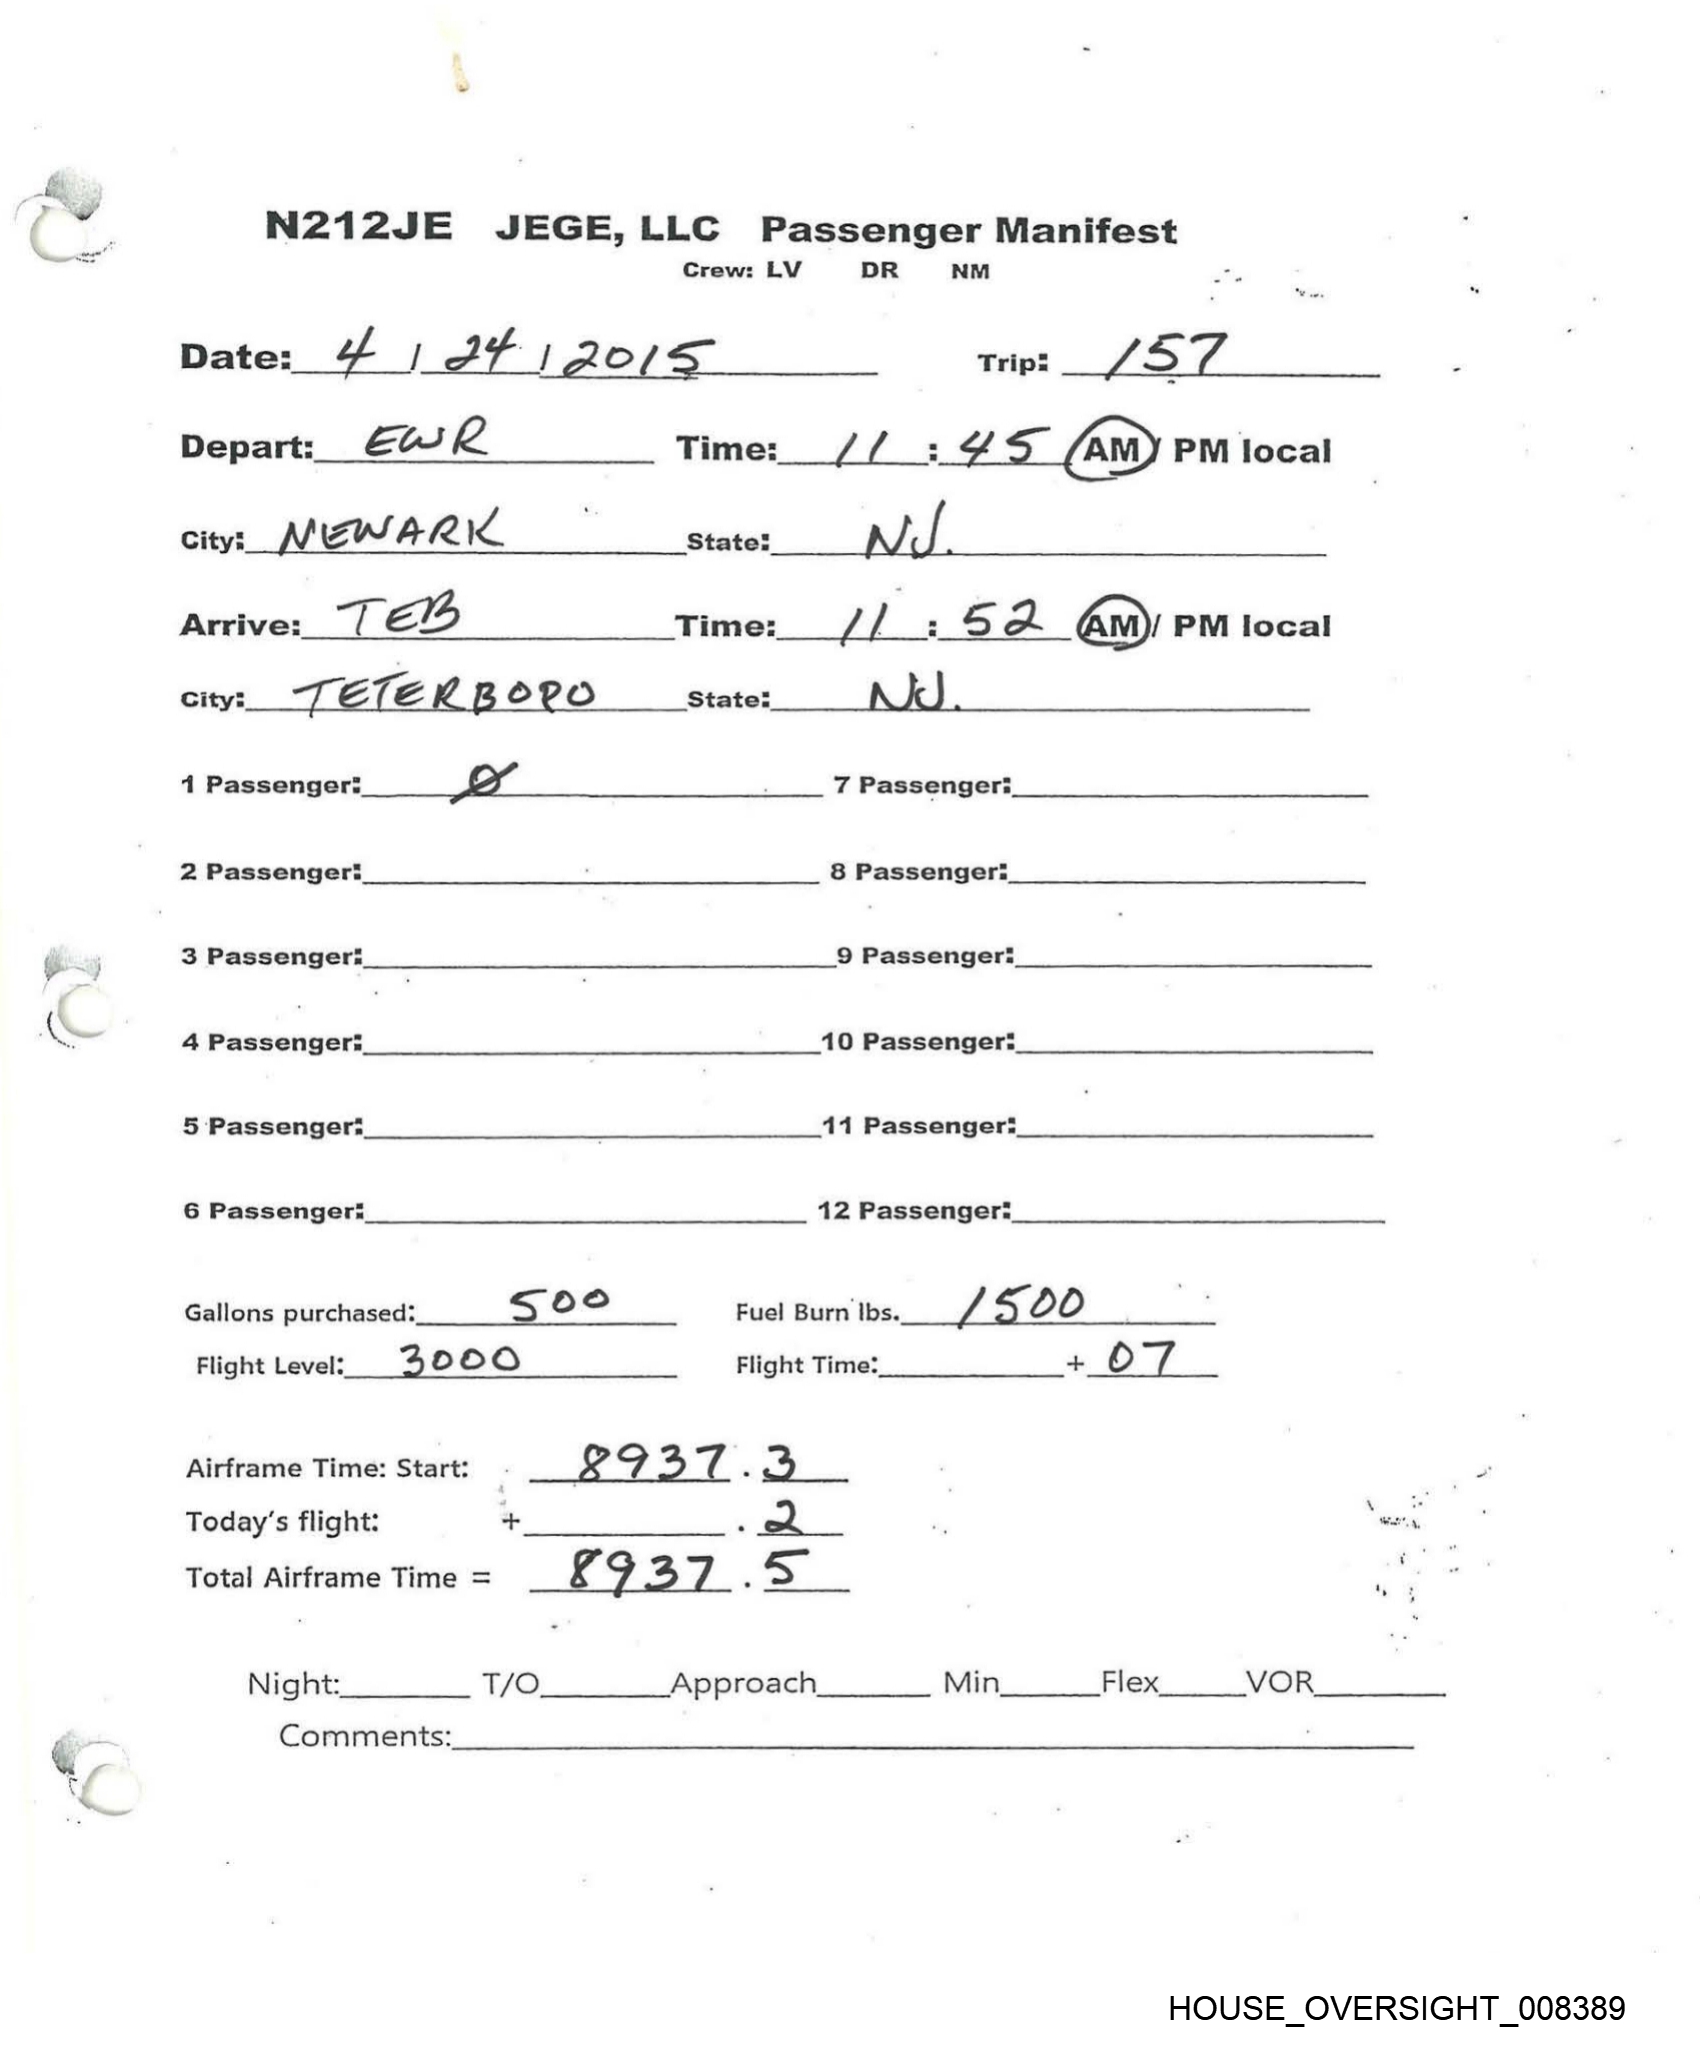 N212JE JEGE, LLC Passenger Manifest
Crew: LV DR NM
Date: 4 / 24 / 2015 Trip: 157
Depart: EWR Time: 11 : 45 AM / PM local
City: NEWARK State: NJ.
Arrive: TEB Time: 11 : 52 AM / PM local
City: TETERBORO State: NJ.
1 Passenger: Ø 7 Passenger:
2 Passenger: 8 Passenger:
3 Passenger: 9 Passenger:
4 Passenger: 10 Passenger:
5 Passenger: 11 Passenger:
6 Passenger: 12 Passenger:
Gallons purchased: 500 Fuel Burn lbs. 1500
Flight Level: 3000 Flight Time: + 07
Airframe Time: Start: 8937 . 3
Today's flight: + . 2
Total Airframe Time = 8937 . 5
Night: T/O Approach Min Flex VOR
Comments:
HOUSE_OVERSIGHT_008389